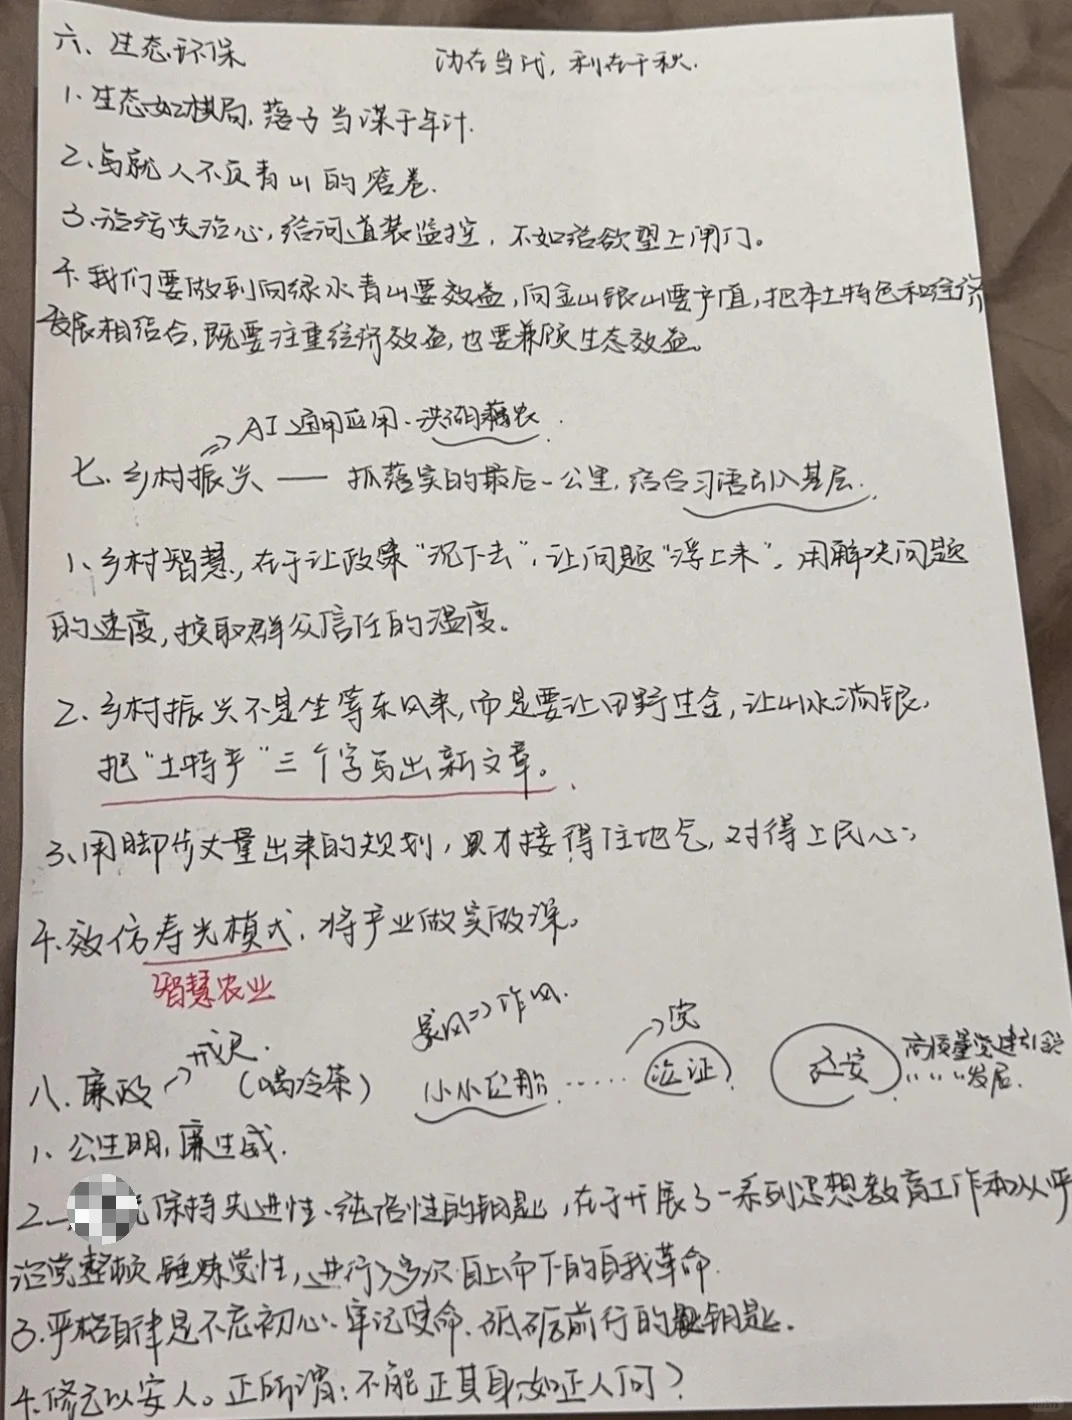 六、生态环保 功在当代，利在千秋.
1.生态如棋局，落子当谋千年计.
2.写就人不负青山的答卷.
3.治污先治心，给河道装监控，不如给欲望上闸门。
4.我们要做到向绿水青山要效益，向金山银山要产值，把本土特色和经济
发展相结合，既要注重经济效益，也要兼顾生态效益。
→AI通用应用、洪湖藕农.
七、乡村振兴——抓落实的最后一公里，结合习语引入基层.
1、乡村智慧，在于让政策“沉下去”，让问题“浮上来”，用解决问题
的速度，换取群众信任的温度。
2、乡村振兴不是坐等东风来，而是要让田野生金，让山水淌银，
把“土特产”三个字写出新文章。
3、用脚步丈量出来的规划，更才接得住地气，对得上民心；
4.效仿寿光模式，将产业做实做深。
智慧农业
暴风→作风.
→戒尺. →党
八.廉政 (喝冷茶) 小小红船…… 延安 高质量党建引领
……发展.
1、公生明，廉生威.
2、保持先进性、纯洁性的钥匙，在于开展了一系列思想教育工作和从严
治党整顿，锤炼党性，进行了多次自上而下的自我革命.
3.严格自律是不忘初心、牢记使命、砥砺前行的钥匙.
4.修己以安人。正所谓：不能正其身，如正人何？